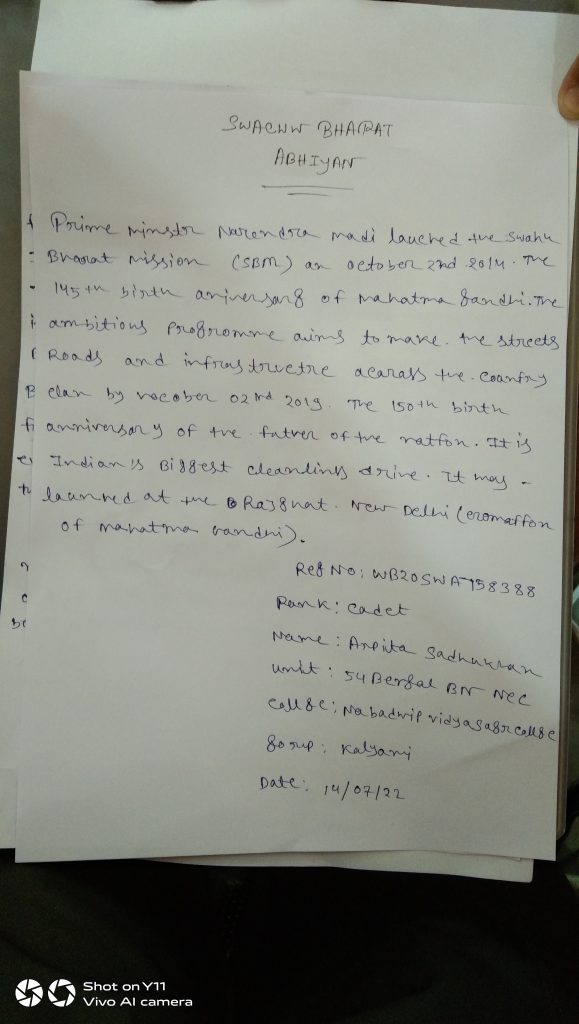 SWACHW BHARAT
ABHIYAN
Prime minstr Narendra madi lauched the Swahh
Bharat mission (SBM) an october 2nd 2014. The
145th birth aniversary of Mahatma Gandhi. The
ambitious Progromme aims to make. the streets
Roads and infrastructre acarass the. Counfry
clan by vocober 02nd 2019. The 150th birth
anniversary of the. father of the natfon. It is
Indian's Biggest cleanlinks drive. It may -
launred at the Rajghat. New Delhi (cromaffon
of mahatma Gandhi).
Reg No: WB20SWA758388
Rank: Cadet
Name: Arpita Sadhukhan
unit: 54 Bengal BN NCC
Nabadwip vidyasagr
Kalyani
Date: 14/07/22
Shot on Y11
Vivo AI camera